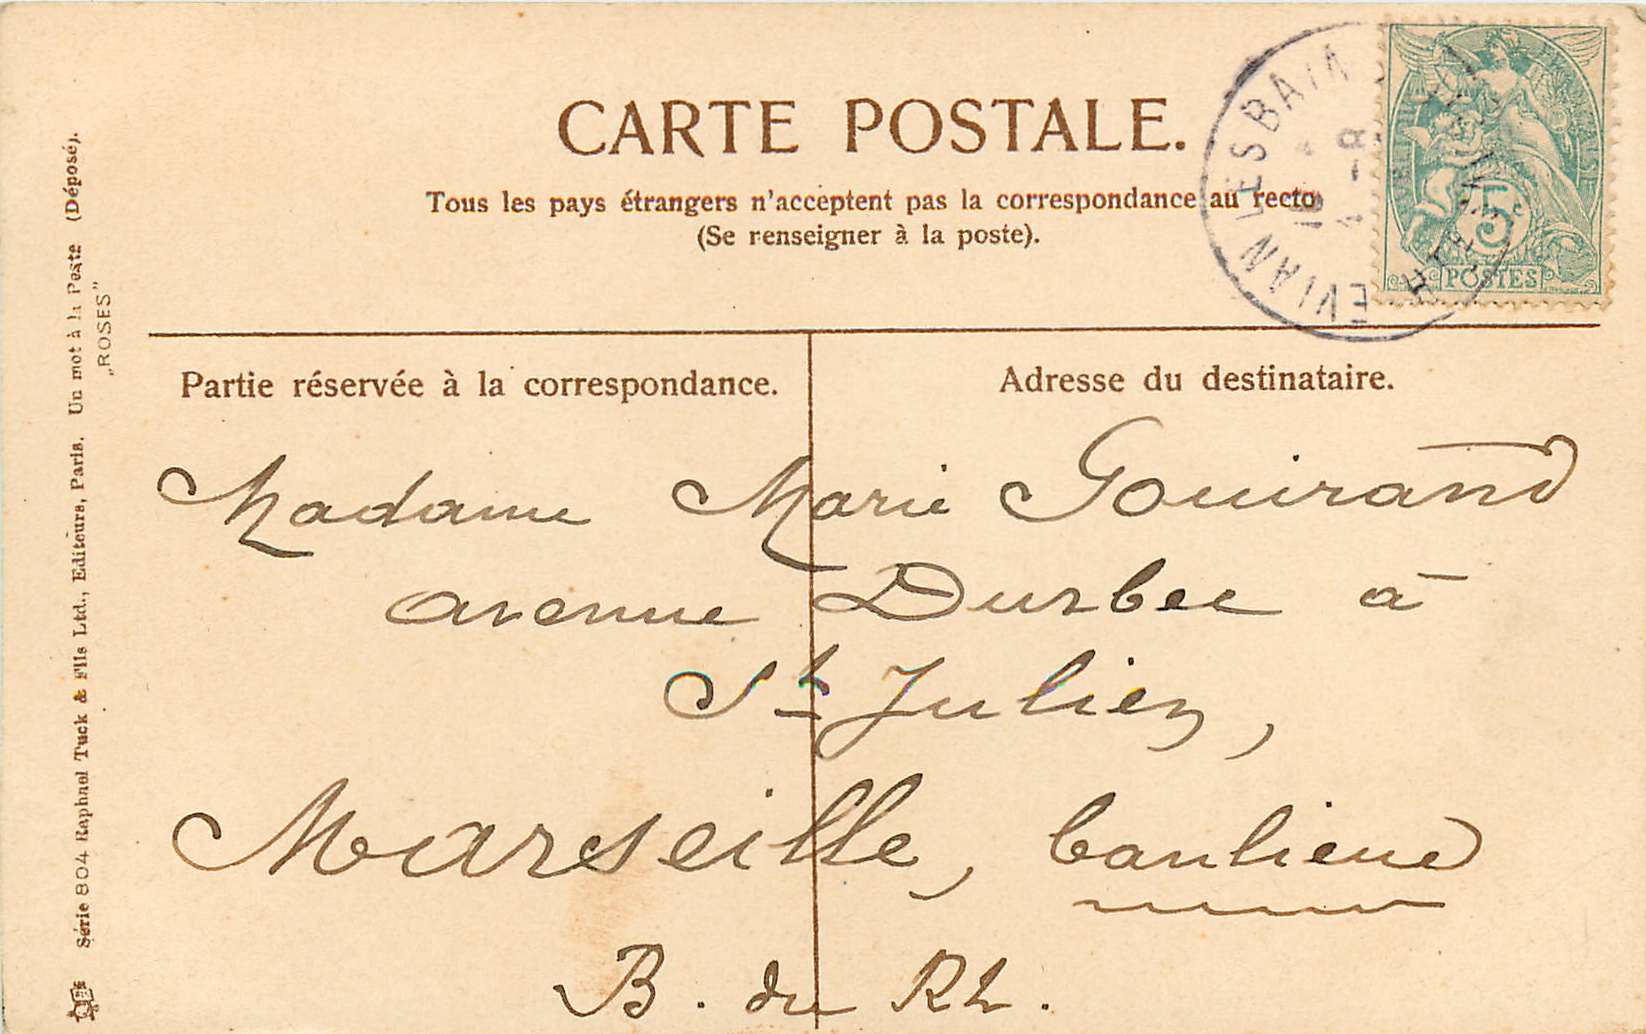 CARTE POSTALE.
Tous les pays étrangers n'acceptent pas la correspondance au recto
(Se renseigner à la poste).
EVIAN LES BAINS
5c
POSTES
Partie réservée à la correspondance.
Adresse du destinataire.
Madame Marie Gouirand
avenue Durbec à
St Julien,
Marseille, banlieue
B. du Rh.
Série 804 Raphael Tuck & Fils Ltd., Editeurs, Paris. Un mot à la Poste (Déposé).
„ROSES”